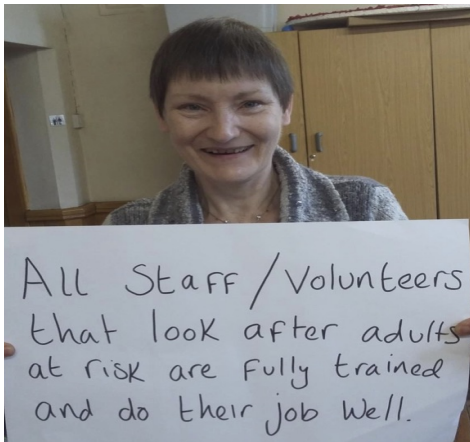 All Staff/Volunteers
that look after adults
at risk are fully trained
and do their job well.